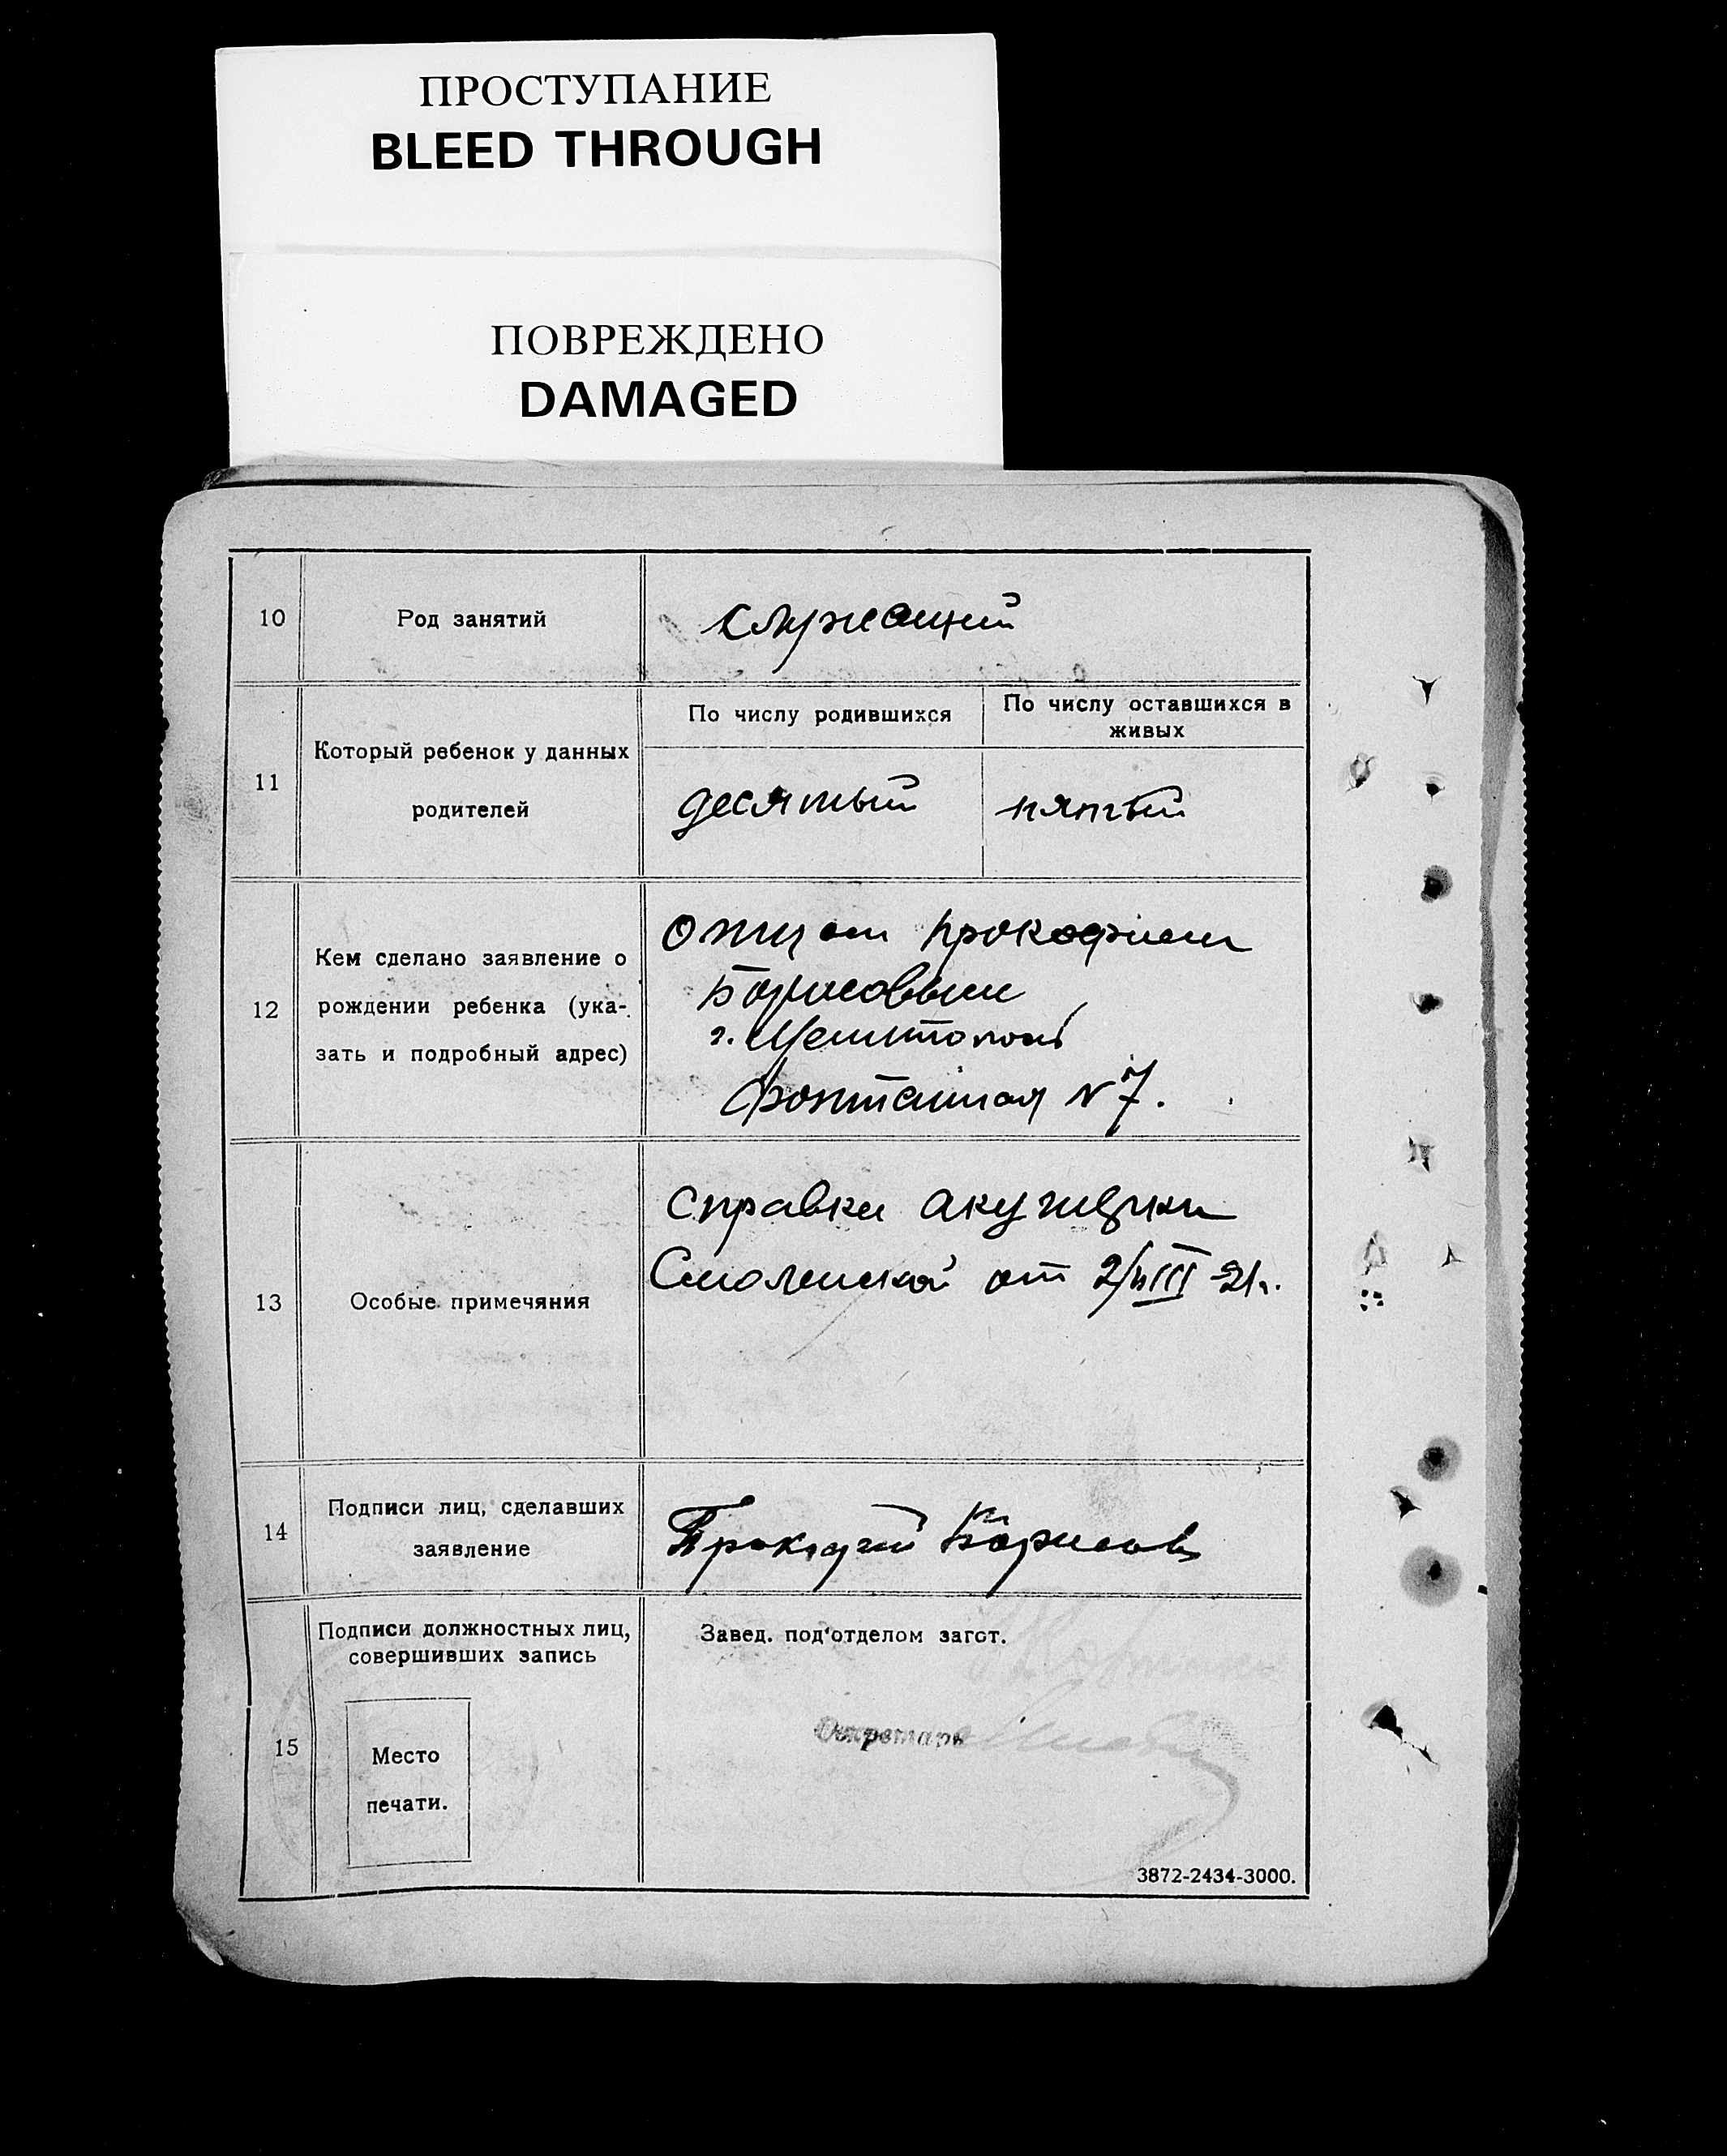 ПРОСТУПАНИЕ
BLEED THROUGH
ПОВРЕЖДЕНО
DAMAGED
10
Род занятий
служащий
11
Который ребенок у данных
родителей
По числу родившихся
По числу оставшихся в
живых
десятый
пятый
12
Кем сделано заявление о
рождении ребенка (ука-
зать и подробный адрес)
Отцом Прокофием
Борисовым
г. Мелитополь
Фонтанная N 7.
13
Особые примечяния
справка акушерки
Смоленской от
14
Подписи лиц, сделавших
заявление
Прокофий Борисов
15
Подписи должностных лиц,
совершивших запись
Место
печати.
Завед. под'отделом загст.
Секретарь
3872-2434-3000.